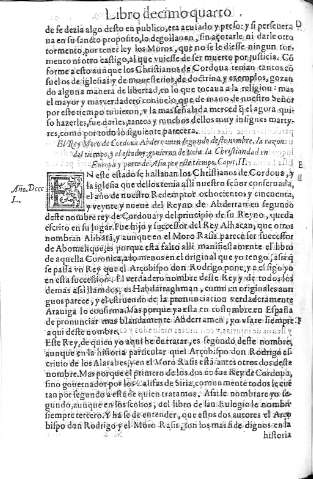 Libro decimo quarto.
D
de se dezia algo desto en publico, era acusado y preso: y si perseueraua
en su sancto proposito, lo degollauan, sin açotarle, ni darle otro
tormento, por tener ley los Moros, que no se le diesse ningun tormento
ni otro castigo, al que vuiesse de ser muerto por justicia. Cõ
forme a esto aunque los Christianos de Cordoua tenian tantos cõ
suelos de iglesias y de monesterios, de doctrina y exemplos, gozando
alguna manera de libertad, en lo que tocaua a la religion: mas
el mayor y mas verdadero consuelo, que de mano de nuestro Señor
por este tiempo tuuieron, y la mas señalada merced q̃ el agora quiso
hazerles, fue darles, tantos y ronchos dellos muy insignes martyres,
como por todo lo siguiente parecera.
El Rey Moro de Cordoua Abderramen segundo deste nombre, la razon
del tiempo, y el estado, general de toda la Christiandad en
Europa y parte de Asia por este tiempo. Capit. II.
E
Año. Dccc
L.
EN este estado se hallauan los Christianos de Cordoua, y la
iglesia que dellos tenia alli nuestro señor conseruada,
el año de nuestro Redemptor ochocientos y cincuenta,
y veynte y nueue del Reyno de Abderramen segundo
deste nombre rey de Cordoua: y del principio de su Reyno, queda
escrito en su lugar. Fue hijo y successor del Rey Alhacan, que otros
nombran Alihatã, y aunque en el Moro Rasis parece ser successor
de Abomelique, es porque esta falto alli manifiestamente el libro
de aquella Coronica, a lo menos en el original que yo tengo, assi q̃
se passa vn Rey que el Arçobispo don Rodrigo pone, y a el sigo yo
en esta succession. El verdadero nombre deste Rey y de todos los
demas assi llamados, es Habdarraghman, como en originales antiguos
parece, y el estruendo de la pronunciacion verdaderamente
Arauiga lo confirma. Mas porque ya esta en costumbre en España
de pronunciar mas blandamente Abderramen, yo vsare siempre
aqui deste nombre.
F
Este Rey, de quien yo aqui he de tratar, es segundo deste nombre,
aunque en la historia particular que el Arçobispo don Rodrigo escriuio
de los Alarabes, y en el Moro Rasis esta antes otros dos deste
nombre. Mas porque el primero de los dos no fue Rey de Cordoua,
sino gouernador por los Califas de Siria, comunmente todos le cuentan
por segundo a este de quien tratamos. Assi le nombrare yo segundo,
aunque en los scolios, del libro de san Eulogio le nombre
siempre tercero. Y ha se de entender, que estos dos autores el Arçobispo
don Rodrigo y el Moro Rasis son los mas fidedignos en la
historia